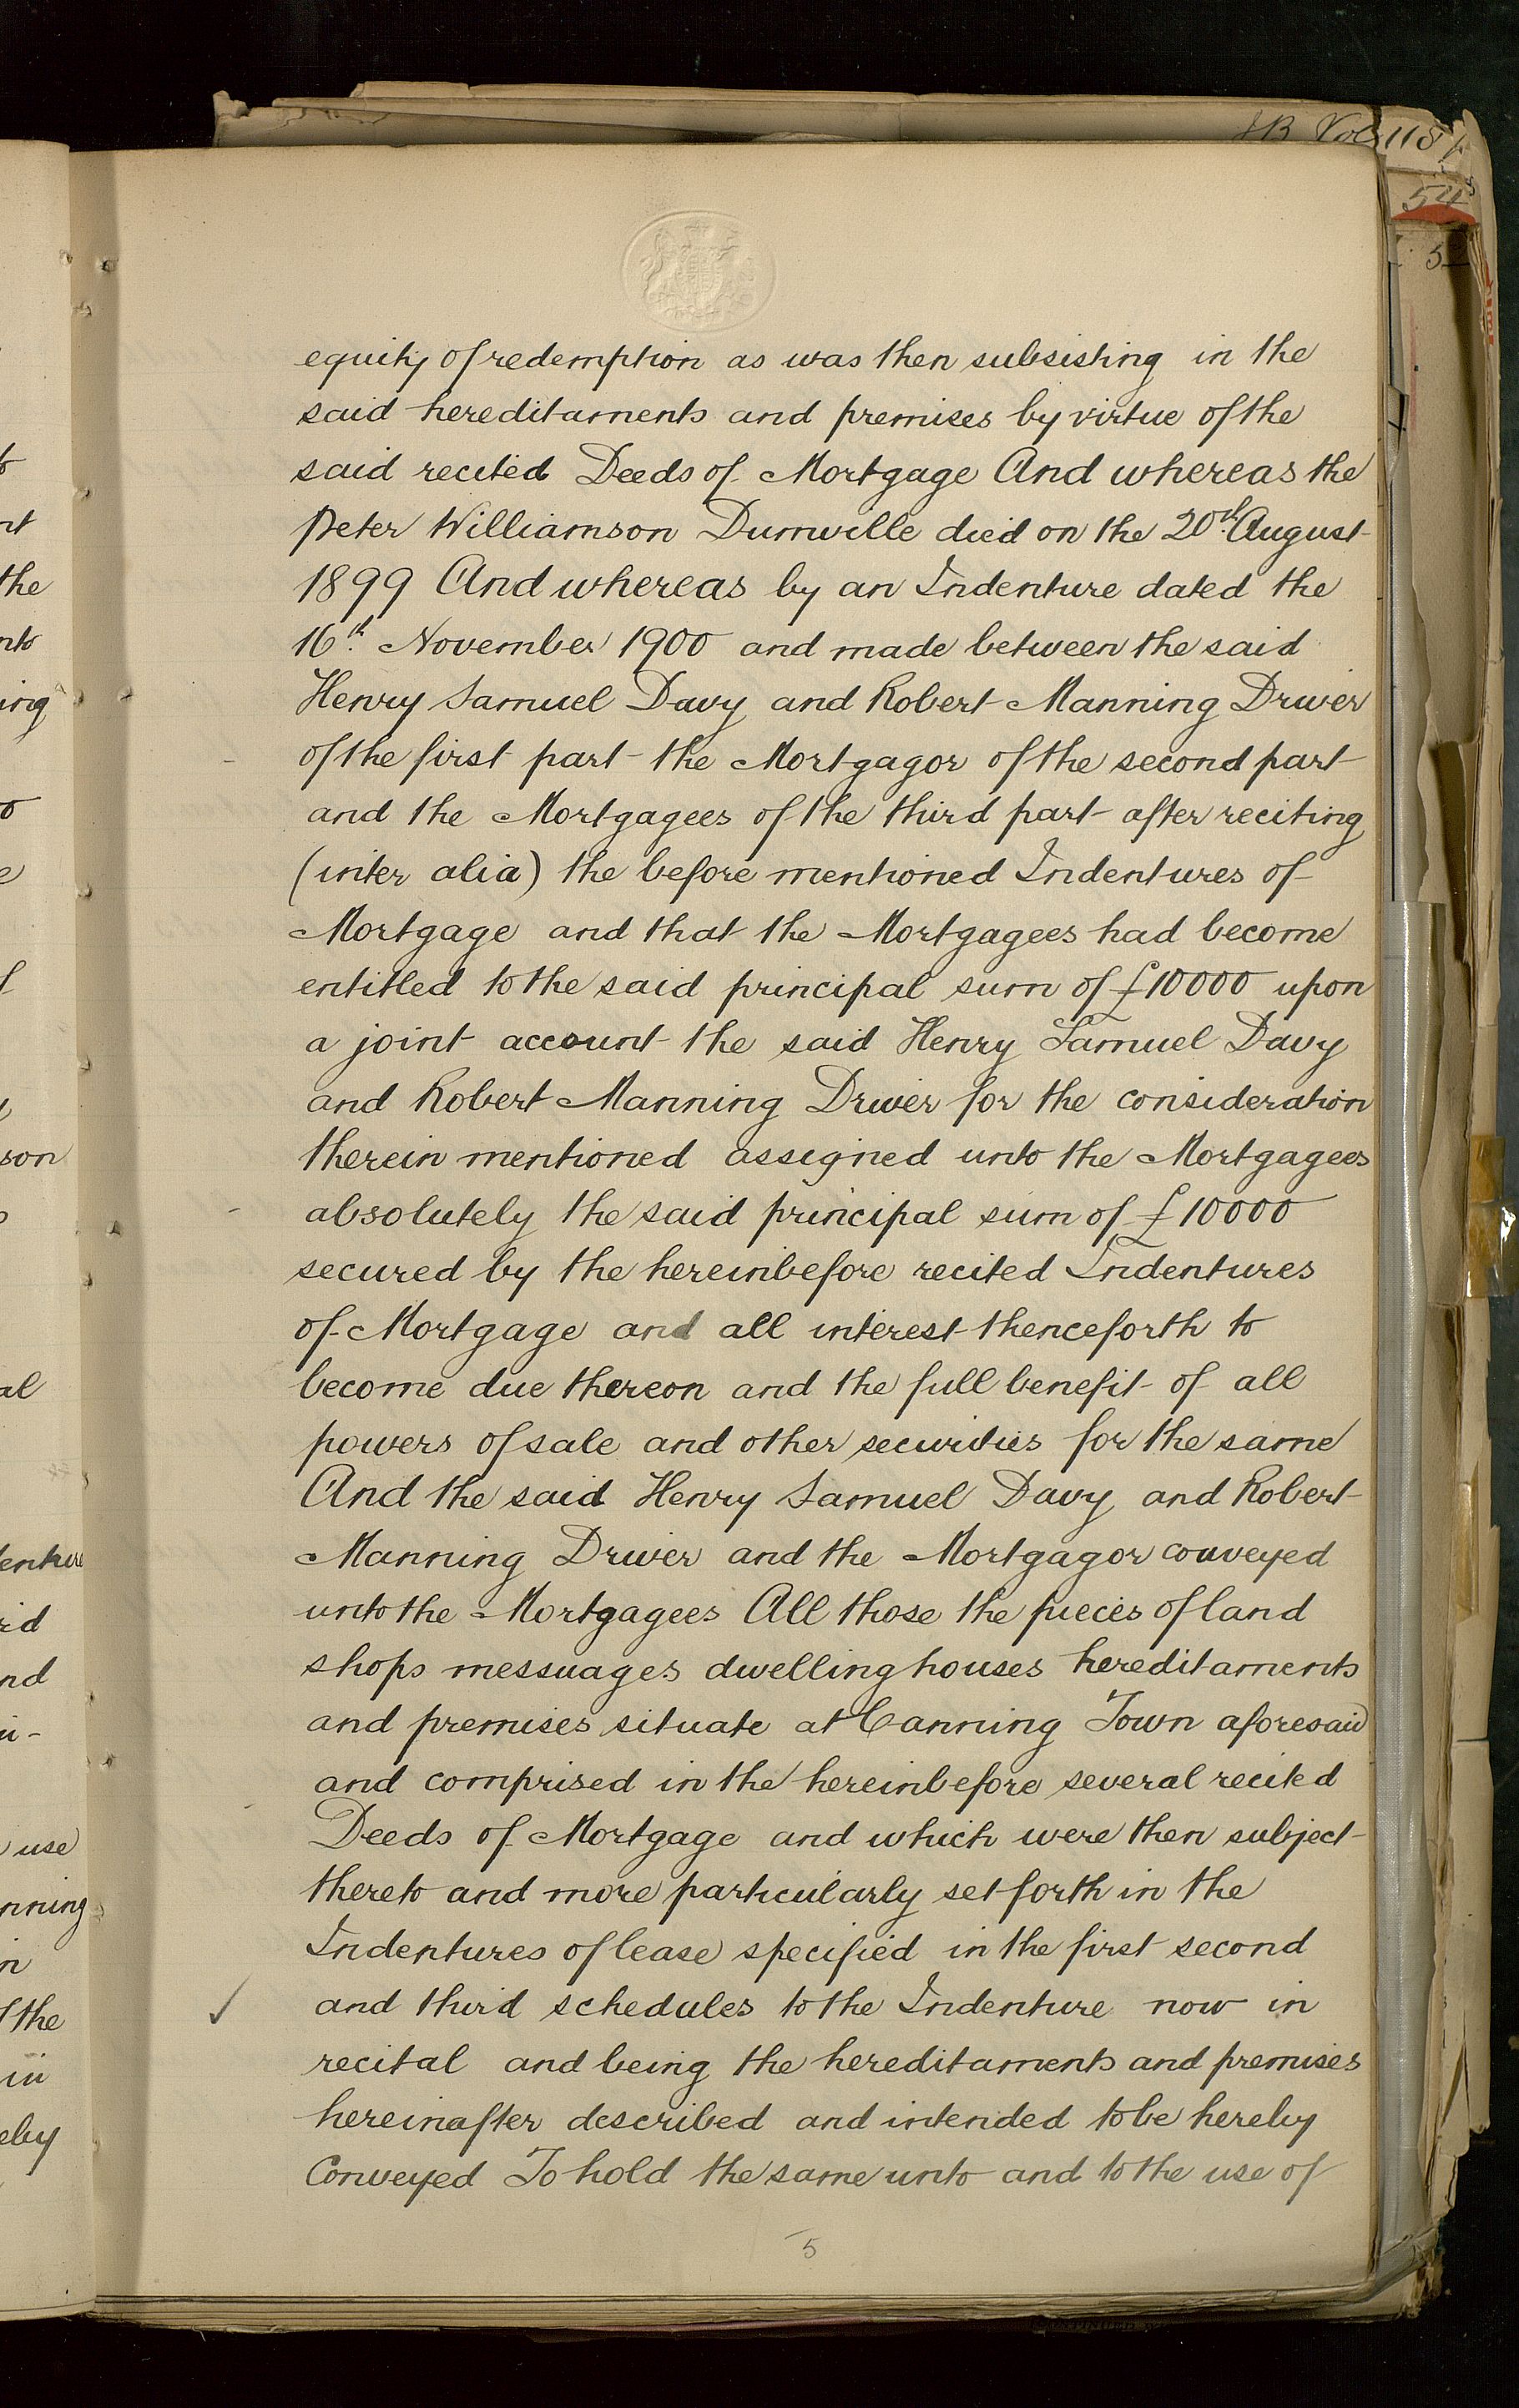 equity of redemption as was then subsisting in the
said hereditaments and premises by virtue of the
said recited Deeds of Mortgage And whereas the
Peter Williamson Dumville died on the 20th August
1899 And whereas by an Indenture dated the
16th November 1900 and made between the said
Henry Samuel Davy and Robert Manning Driver
of the first part the Mortgagor of the second part
and the Mortgagees of the third part after reciting
(inter alia) the before mentioned Indentures of
Mortgage and that the Mortgagees had become
entitled to the said principal sum of £10000 upon
a joint account the said Henry Samuel Davy
and Robert Manning Driver for the consideration
therein mentioned assigned unto the Mortgagees
absolutely the said principal sum of £10000
secured by the hereinbefore recited Indentures
of Mortgage and all interest thenceforth to
become due thereon and the full benefit of all
powers of sale and other securities for the same
And the said Henry Samuel Davy and Robert
Manning Driver and the Mortgagor conveyed
unto the Mortgagees All those the pieces of land
shops messuages dwellinghouses hereditaments
and premises situate at Canning Town aforesaid
and comprised in the hereinbefore several recited
Deeds of Mortgage and which were then subject
thereto and more particularly set forth in the
Indentures of lease specified in the first second
and third schedules to the Indenture now in
recital and being the hereditaments and premises
hereinafter described and intended to be hereby
Conveyed To hold the same unto and to the use of
5